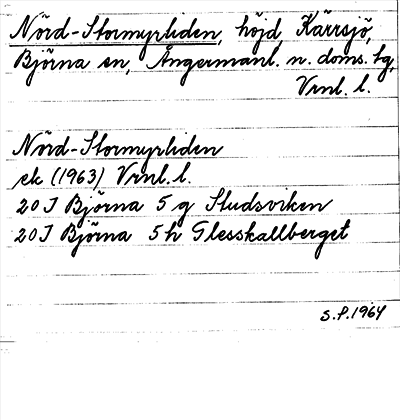 Nörd-Stormyrliden, höjd, Kärrsjö,
Björna sn, Ångermanl. n. doms. tg,
Vrnl. l.
Nörd-Stormyrliden
ek (1963) Vrnl. l.
20 J Björna 5 g Studsviken
20 J Björna 5 h Flesskallberget
S.P. 1964